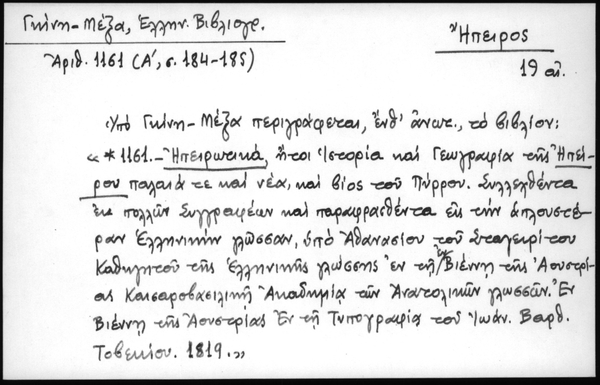 Γκίνη-Μέξα, Ἑλλην. Βιβλιογρ.
Ἀριθ. 1161 (Α', σ. 184-185)
Ἤπειρος
19 αἰ.
Ὑπὸ Γκίνη-Μέξα περιγράφεται, ἔνθ' ἀνωτ., τὸ βιβλίον:
«*1161.- Ἠπειρωτικά, ἤτοι Ἱστορία καὶ Γεωγραφία τῆς Ἠπεί-
ρου παλαιά τε καὶ νέα, καὶ βίος τοῦ Πύρρου. Συλλεχθέντα
ἐκ πολλῶν Συγγραφέων καὶ παραφρασθέντα εἰς τὴν ἁπλουστέ-
ραν Ἑλληνικὴν γλῶσσαν, ὑπὸ Ἀθανασίου τοῦ Σταγειρίτου
Καθηγητοῦ τῆς Ἑλληνικῆς γλώσσης ἐν τῇ ἐν Βιέννῃ τῆς Ἀουστρί-
ας Καισαροβασιλικῇ Ἀκαδημίᾳ τῶν Ἀνατολικῶν γλωσσῶν. Ἐν
Βιέννῃ τῆς Ἀουστρίας Ἐν τῇ Τυπογραφίᾳ τοῦ Ἰωάν. Βαρθ.
Τσβεκίου. 1819.»